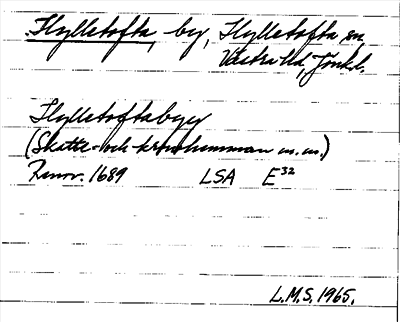 Hylletofta, by, Hylletofta sn
Västra hd, Jönkl.
Hylletoftabyy
(Skatte- och kronohemman m.m.)
Renov. 1689 LSA E32
L.M.S. 1965.